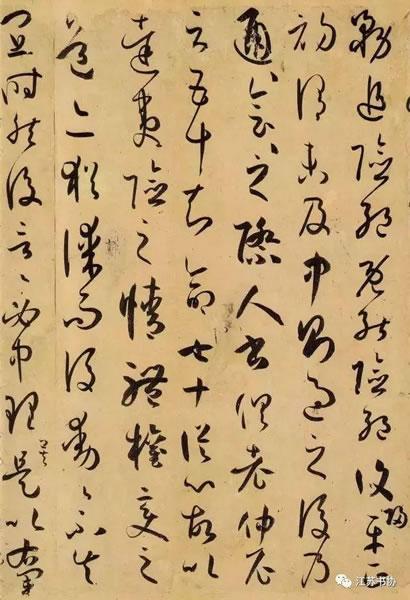 務追險絕既能險絕復歸平正
初謂未及中則過之後乃
通〻會〻之際人書俱老仲尼
云五十知命七十從心故以
達夷險之情體權變之
道亦猶謀而後動〻不失
宜時然後言〻必中理矣是以右軍
江苏书协